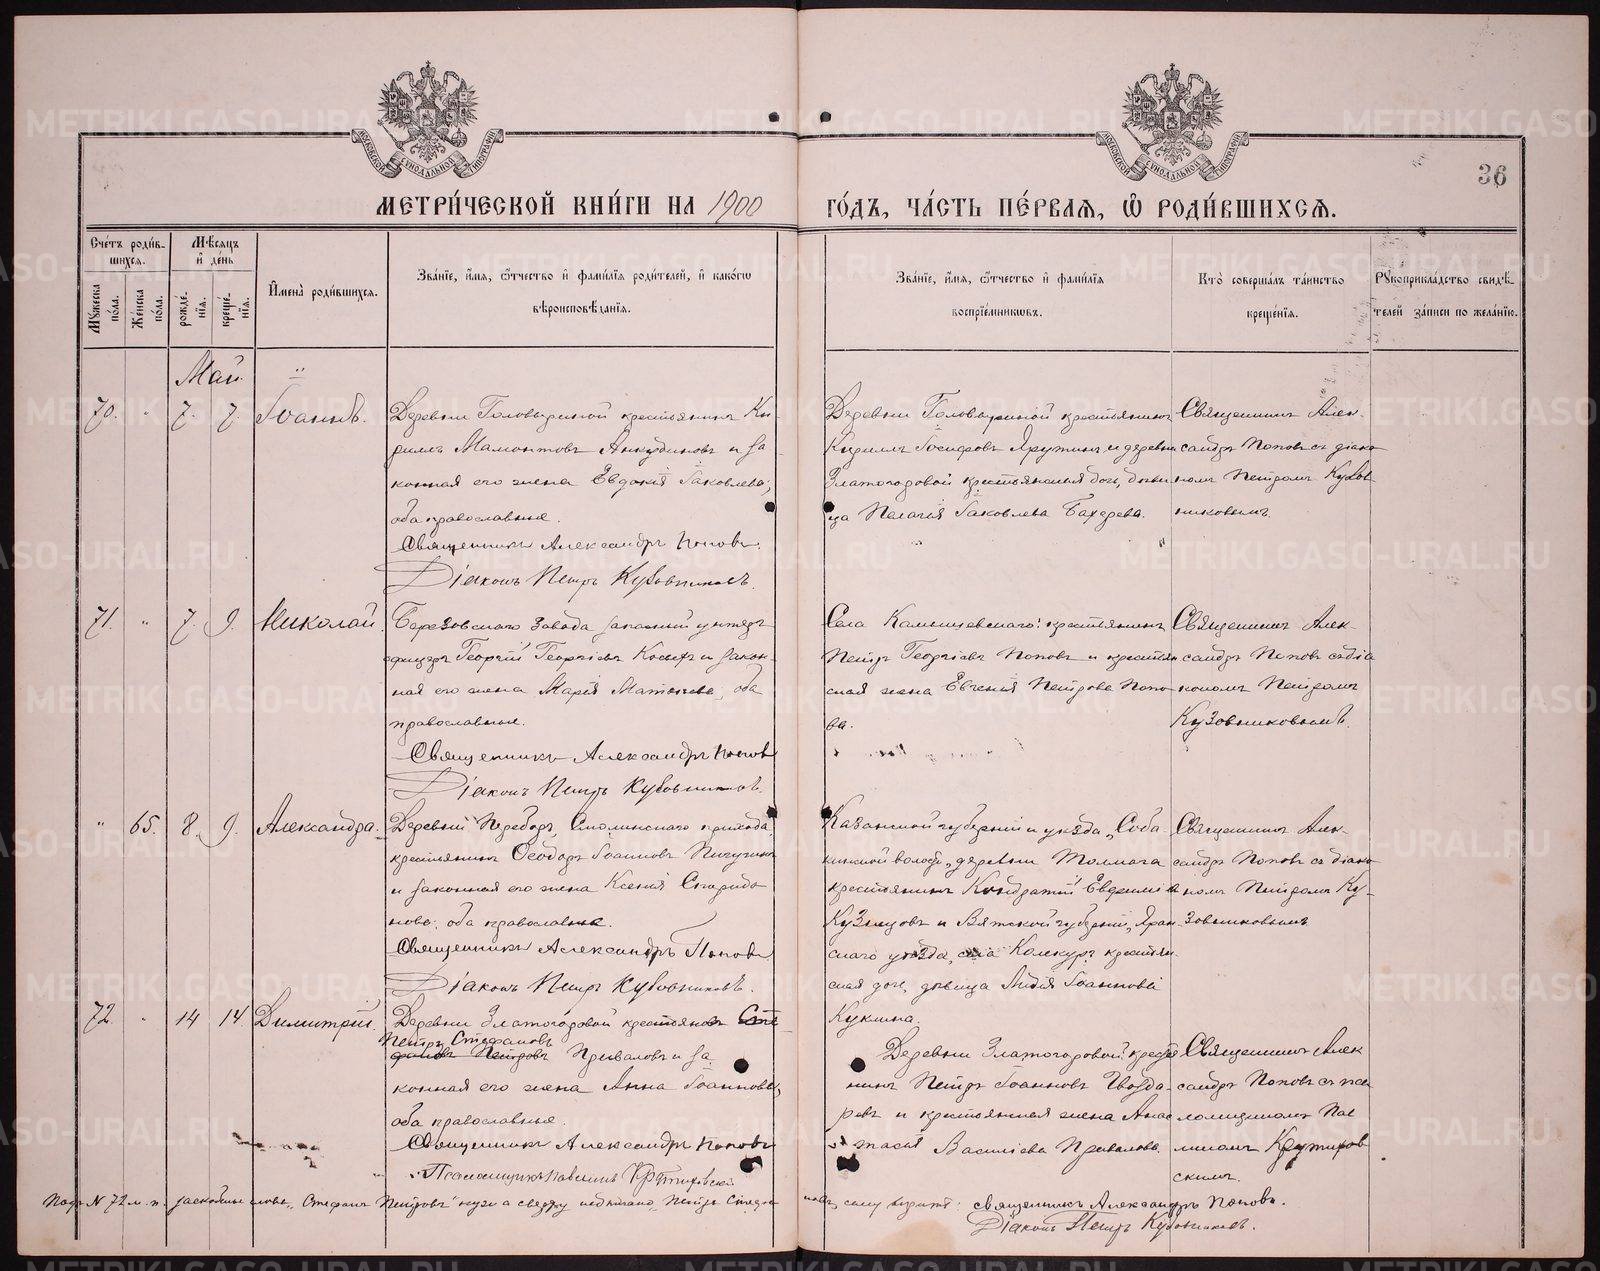 МОСКОВСКОЙ СѴНОДАЛЬНОЙ ТИПОГРАФІИ
МОСКОВСКОЙ СѴНОДАЛЬНОЙ ТИПОГРАФІИ
36
МЕТРИ́ЧЕСКОЙ КНИ́ГИ НА 1900
ГО́ДЪ, ЧА́СТЬ ПЕ́РВАѦ, Ѡ РОДИ́ВШИХСѦ.
Сче́тъ роди́в-
шихсѧ.
Мꙋжеска по́ла.
Же́нска по́ла.
Мѣ́сѧцъ и де́нь
рожде́нїѧ.
креще́нїѧ.
Имена̀ роди́вшихсѧ.
Зва́нїе, и́мѧ, ѻ́тчество и фами́лїѧ роди́телей, и како́гѡ
вѣроисповѣ́данїѧ.
Зва́нїе, и́мѧ, ѻ́тчество и фами́лїѧ
воспрїе́мникѡвъ.
Кто̀ соверша́лъ та́инство
креще́нїѧ.
Рꙋкоприкла́дство свидѣ́-
телей за́писи по жела́нїю.
Май.
70. " 7. 7. Іоаннъ.
Деревни Головыриной крестьянинъ Ки-
рилъ Мамонтовъ Анкудиновъ и за-
конная его жена Евдокія Іаковлева,
оба православные.
Священникъ Александръ Поповъ.
Діаконъ Петръ Кузовниковъ.
Деревни Головыриной крестьянинъ
Кириллъ Іосифовъ Ярутинъ и деревни
Златогоровой крестьянская дочь, дѣви-
ца Пелагія Іаковлева Бахарева.
Священникъ Алек-
сандръ Поповъ съ діако-
номъ Петромъ Кузов-
никовымъ.
71. " 7. 9. Николай.
Березовскаго завода запасный унтеръ
офицеръ Георгій Георгіевъ и закон-
ная его жена Марія оба
православные.
Священникъ Александръ Поповъ
Діаконъ Петръ Кузовниковъ.
Села Камышевскаго: крестьянинъ
Петръ Георгіевъ Поповъ и крестьян
ская жена Евгенія Петрова Попо-
ва.
Священникъ Алек-
сандръ Поповъ съ діа
кономъ Петромъ
Кузовниковымъ.
" 65. 8. 9. Александра.
Деревни Переборъ, Смолинскаго прихода,
крестьянинъ Ѳеодоръ Іоанновъ Пичугинъ
и законная его жена Ксенія Спиридо-
нова, оба православные.
Священникъ Александръ Поповъ
Діаконъ Петръ Кузовниковъ.
Казанской губерніи и уѣзда, Соба-
кинской волости, деревни Толмача
крестьянинъ Кондратій Евфиміевъ
Кузнецовъ и Вятской губерніи, Яран-
скаго уѣзда, села крестьян-
ская дочь, дѣвица Лидія Іоаннова
Куклина.
Священникъ Алек-
сандръ Поповъ съ діако-
номъ Петромъ Ку-
зовниковымъ
72. " 14 14 Димитрій.
Деревни Златогоровой крестьянинъ Сте
Петръ Стефановъ
фановъ Петровъ Приваловъ и за-
конная его жена Анна Іоаннова,
оба православные.
Священникъ Александръ Поповъ
Псаломщикъ Павлинъ Крутиховскій
Деревни Златогоровой крестья
нинъ Петръ Іоанновъ Гвозда-
ревъ и крестьянская жена Анас
тасія Васильева Привалова.
Священникъ Алек
сандръ Поповъ съ пса-
ломщикомъ Пав
линомъ Крутихов
скимъ.
Подъ N 72 м. п. слова, Стефанъ Петровъ а сверху надписано, Петръ Стефановъ, сему вѣрить: священникъ Александръ Поповъ.
Діаконъ Петръ Кузовниковъ.
METRIKI.GASO-URAL.RU